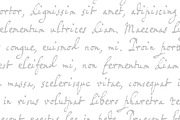 tortor, dignissim sit amet, adipiscing
elementum ultrices diam. Maecenas l
congue, euismod non, mi. Proin port
est eleifend mi, non fermentum diam
massa, scelerisque vitae, consequat
in risus volutpat libero pharetra te